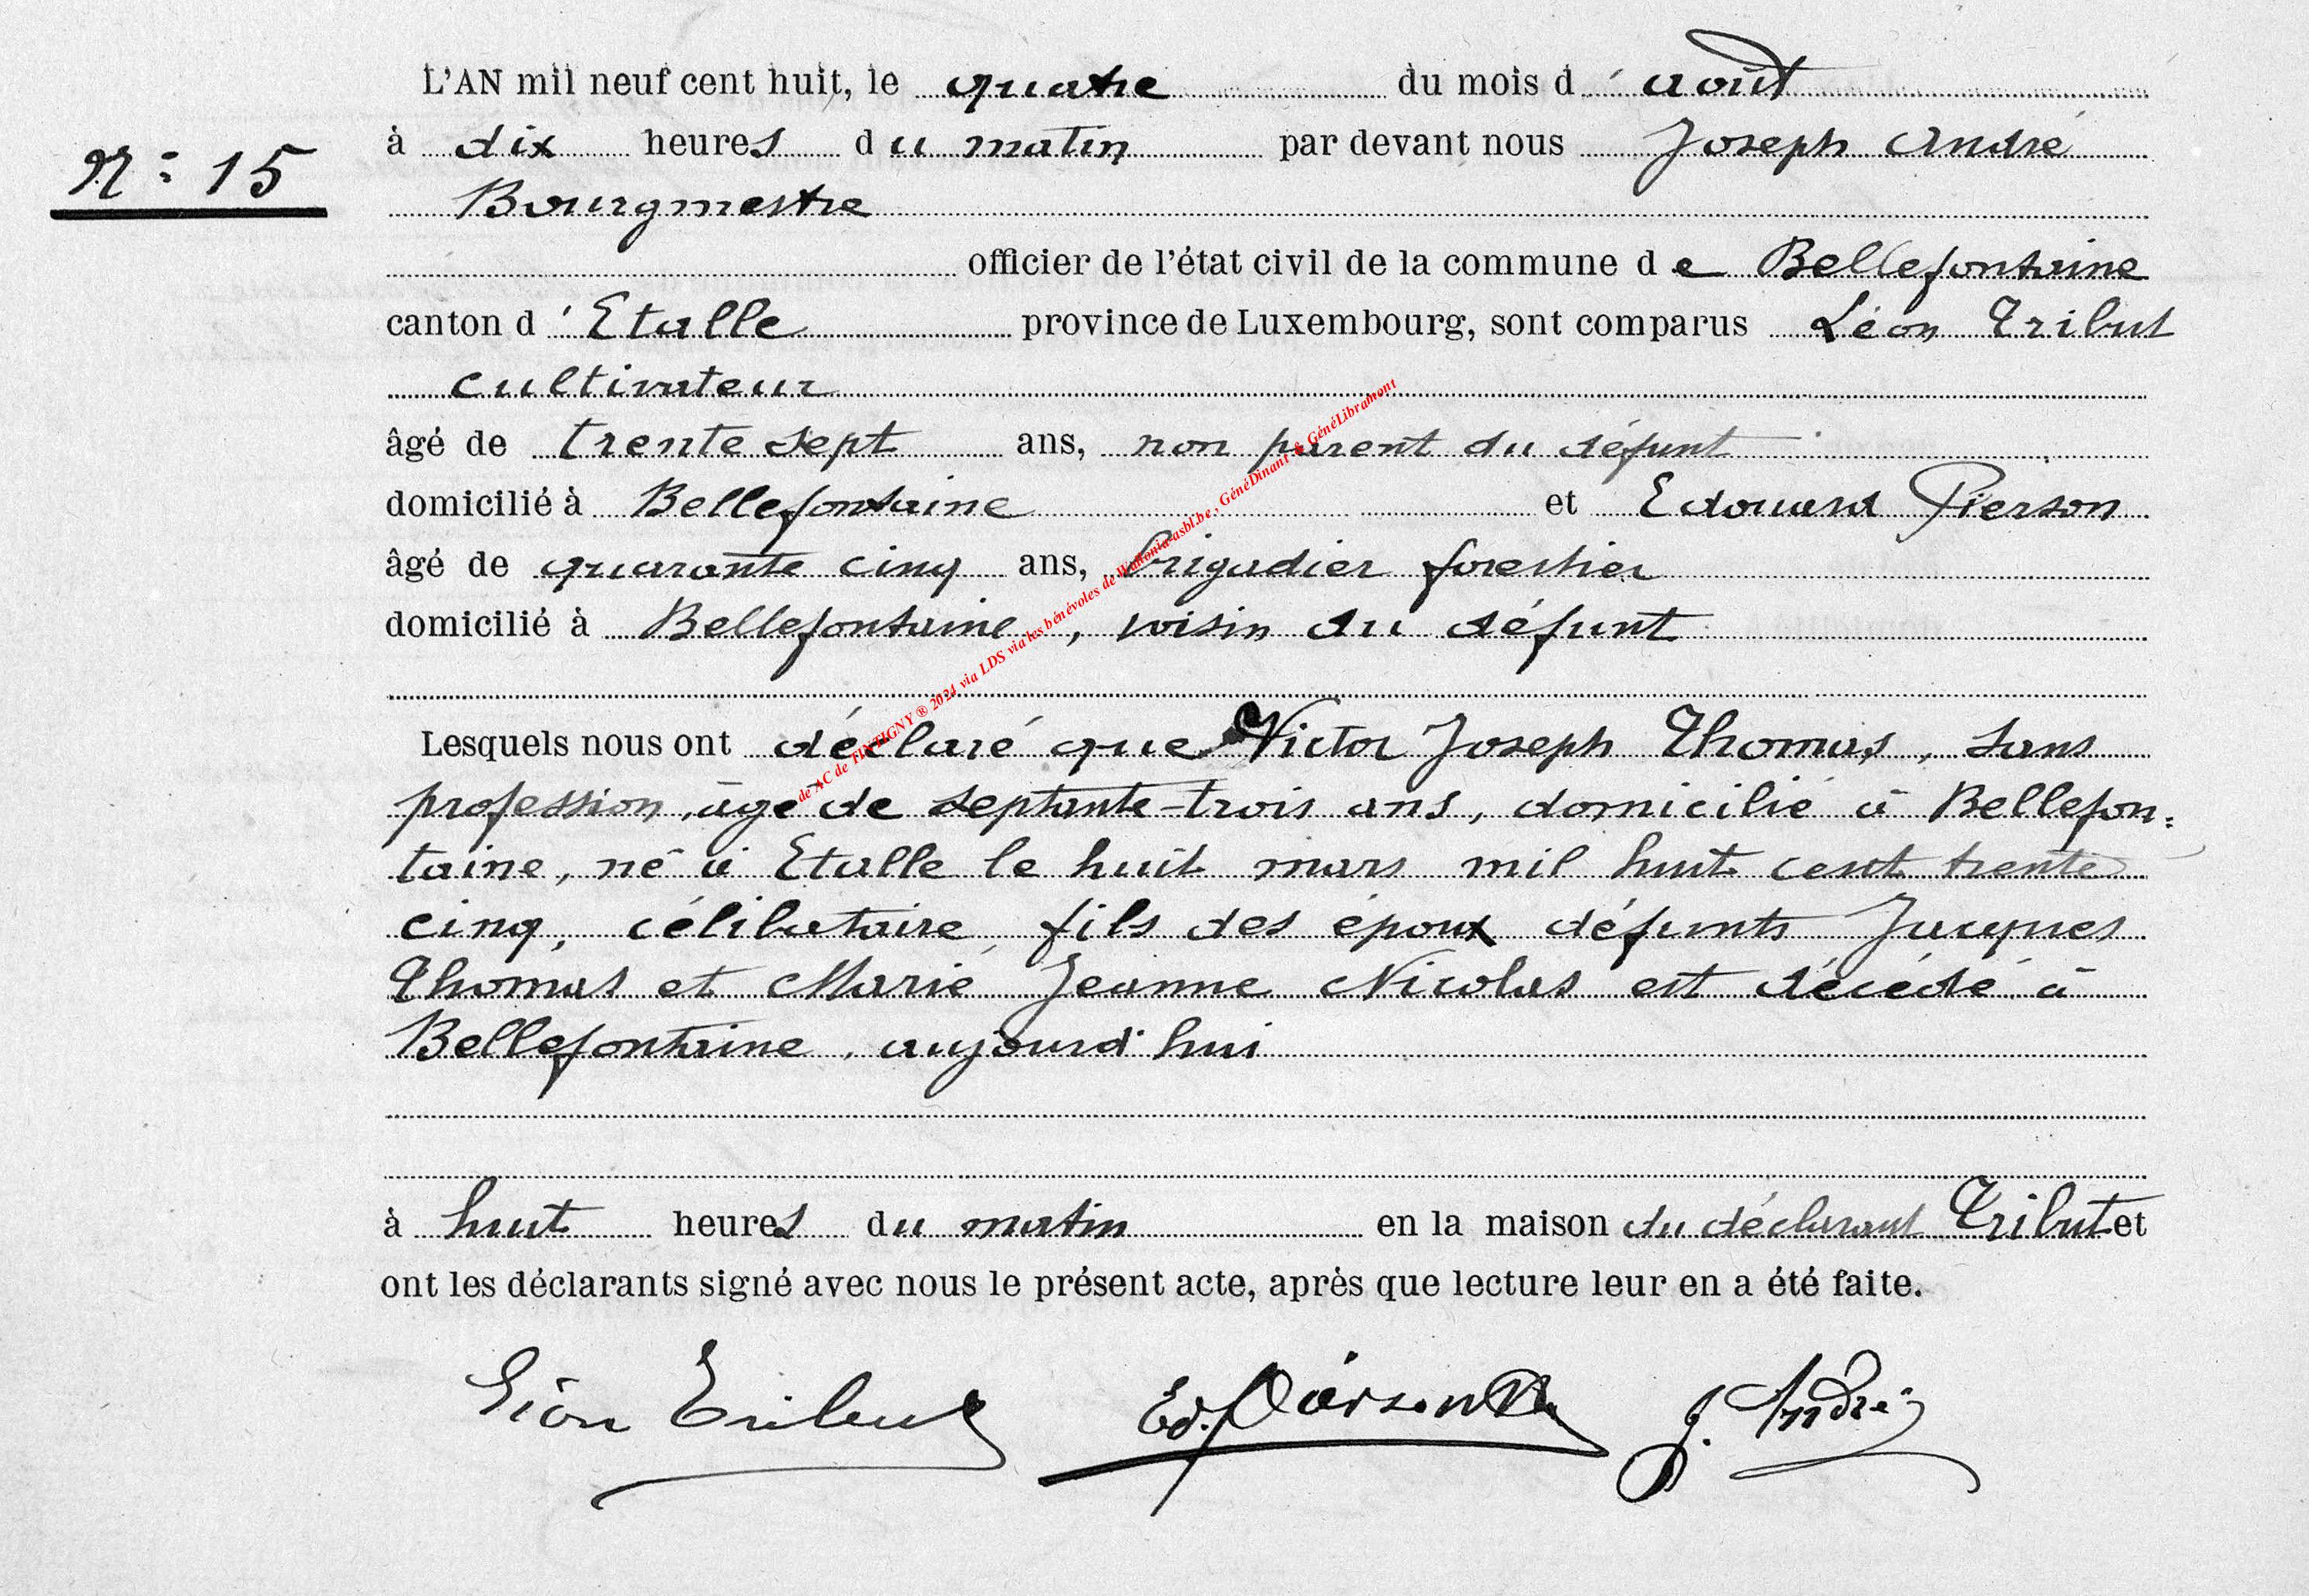 L'AN mil neuf cent huit, le quatre du mois d'août
N° 15
à dix heures du matin par devant nous Joseph André
Bourgmestre
officier de l'état civil de la commune de Bellefontaine
canton d'Etalle province de Luxembourg, sont comparus Léon Tribut
cultivateur
âgé de trente sept ans, non parent du défunt
domicilié à Bellefontaine et Edouard Pierson
âgé de quarante cinq ans, brigadier forestier
domicilié à Bellefontaine, voisin du défunt
Lesquels nous ont déclaré que Victor Joseph Thomas, sans
profession, âgé de septante-trois ans, domicilié à Bellefon:
taine, né à Etalle le huit mars mil huit cent trente
cinq, célibataire, fils des époux défunts Jacques
Thomas et Marie Jeanne Nicolas est décédé à
Bellefontaine, aujourd'hui
à huit heures du matin en la maison du déclarant Tribut et
ont les déclarants signé avec nous le présent acte, après que lecture leur en a été faite.
Léon Tribut Ed. Pierson J. André
de AC de TINTIGNY ® 2024 via LDS via les bénévoles de Wallonia-asbl.be, GénéDinant & GénéLibramont